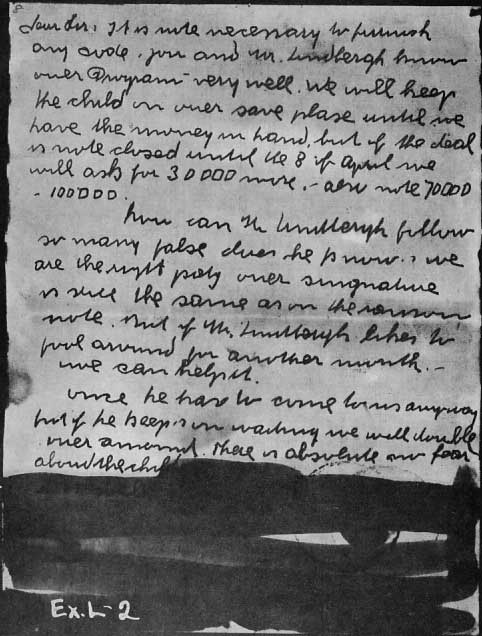 Dear Sir: It is note necessary to furnish
any code. you and Mr. Lindbergh know
ouer Program very well. We will keep
the child on ouer save plase until we
have the money in hand, but if the deal
is note closed until the 8 of April we
will ask for 30000 more. - also note 70000
- 100000.
how can Mr. Lindbergh follow
so many false clues he know: we
are the right party ouer singnature
is still the same as on the ransom
note. But if Mr. Lindbergh likes to
fool around for another month. -
we can help it.
once he has to come to us anyway
but if he keeps on waiting we will double
ouer amount. There is absolute no fear
aboud the child
Ex. L-2